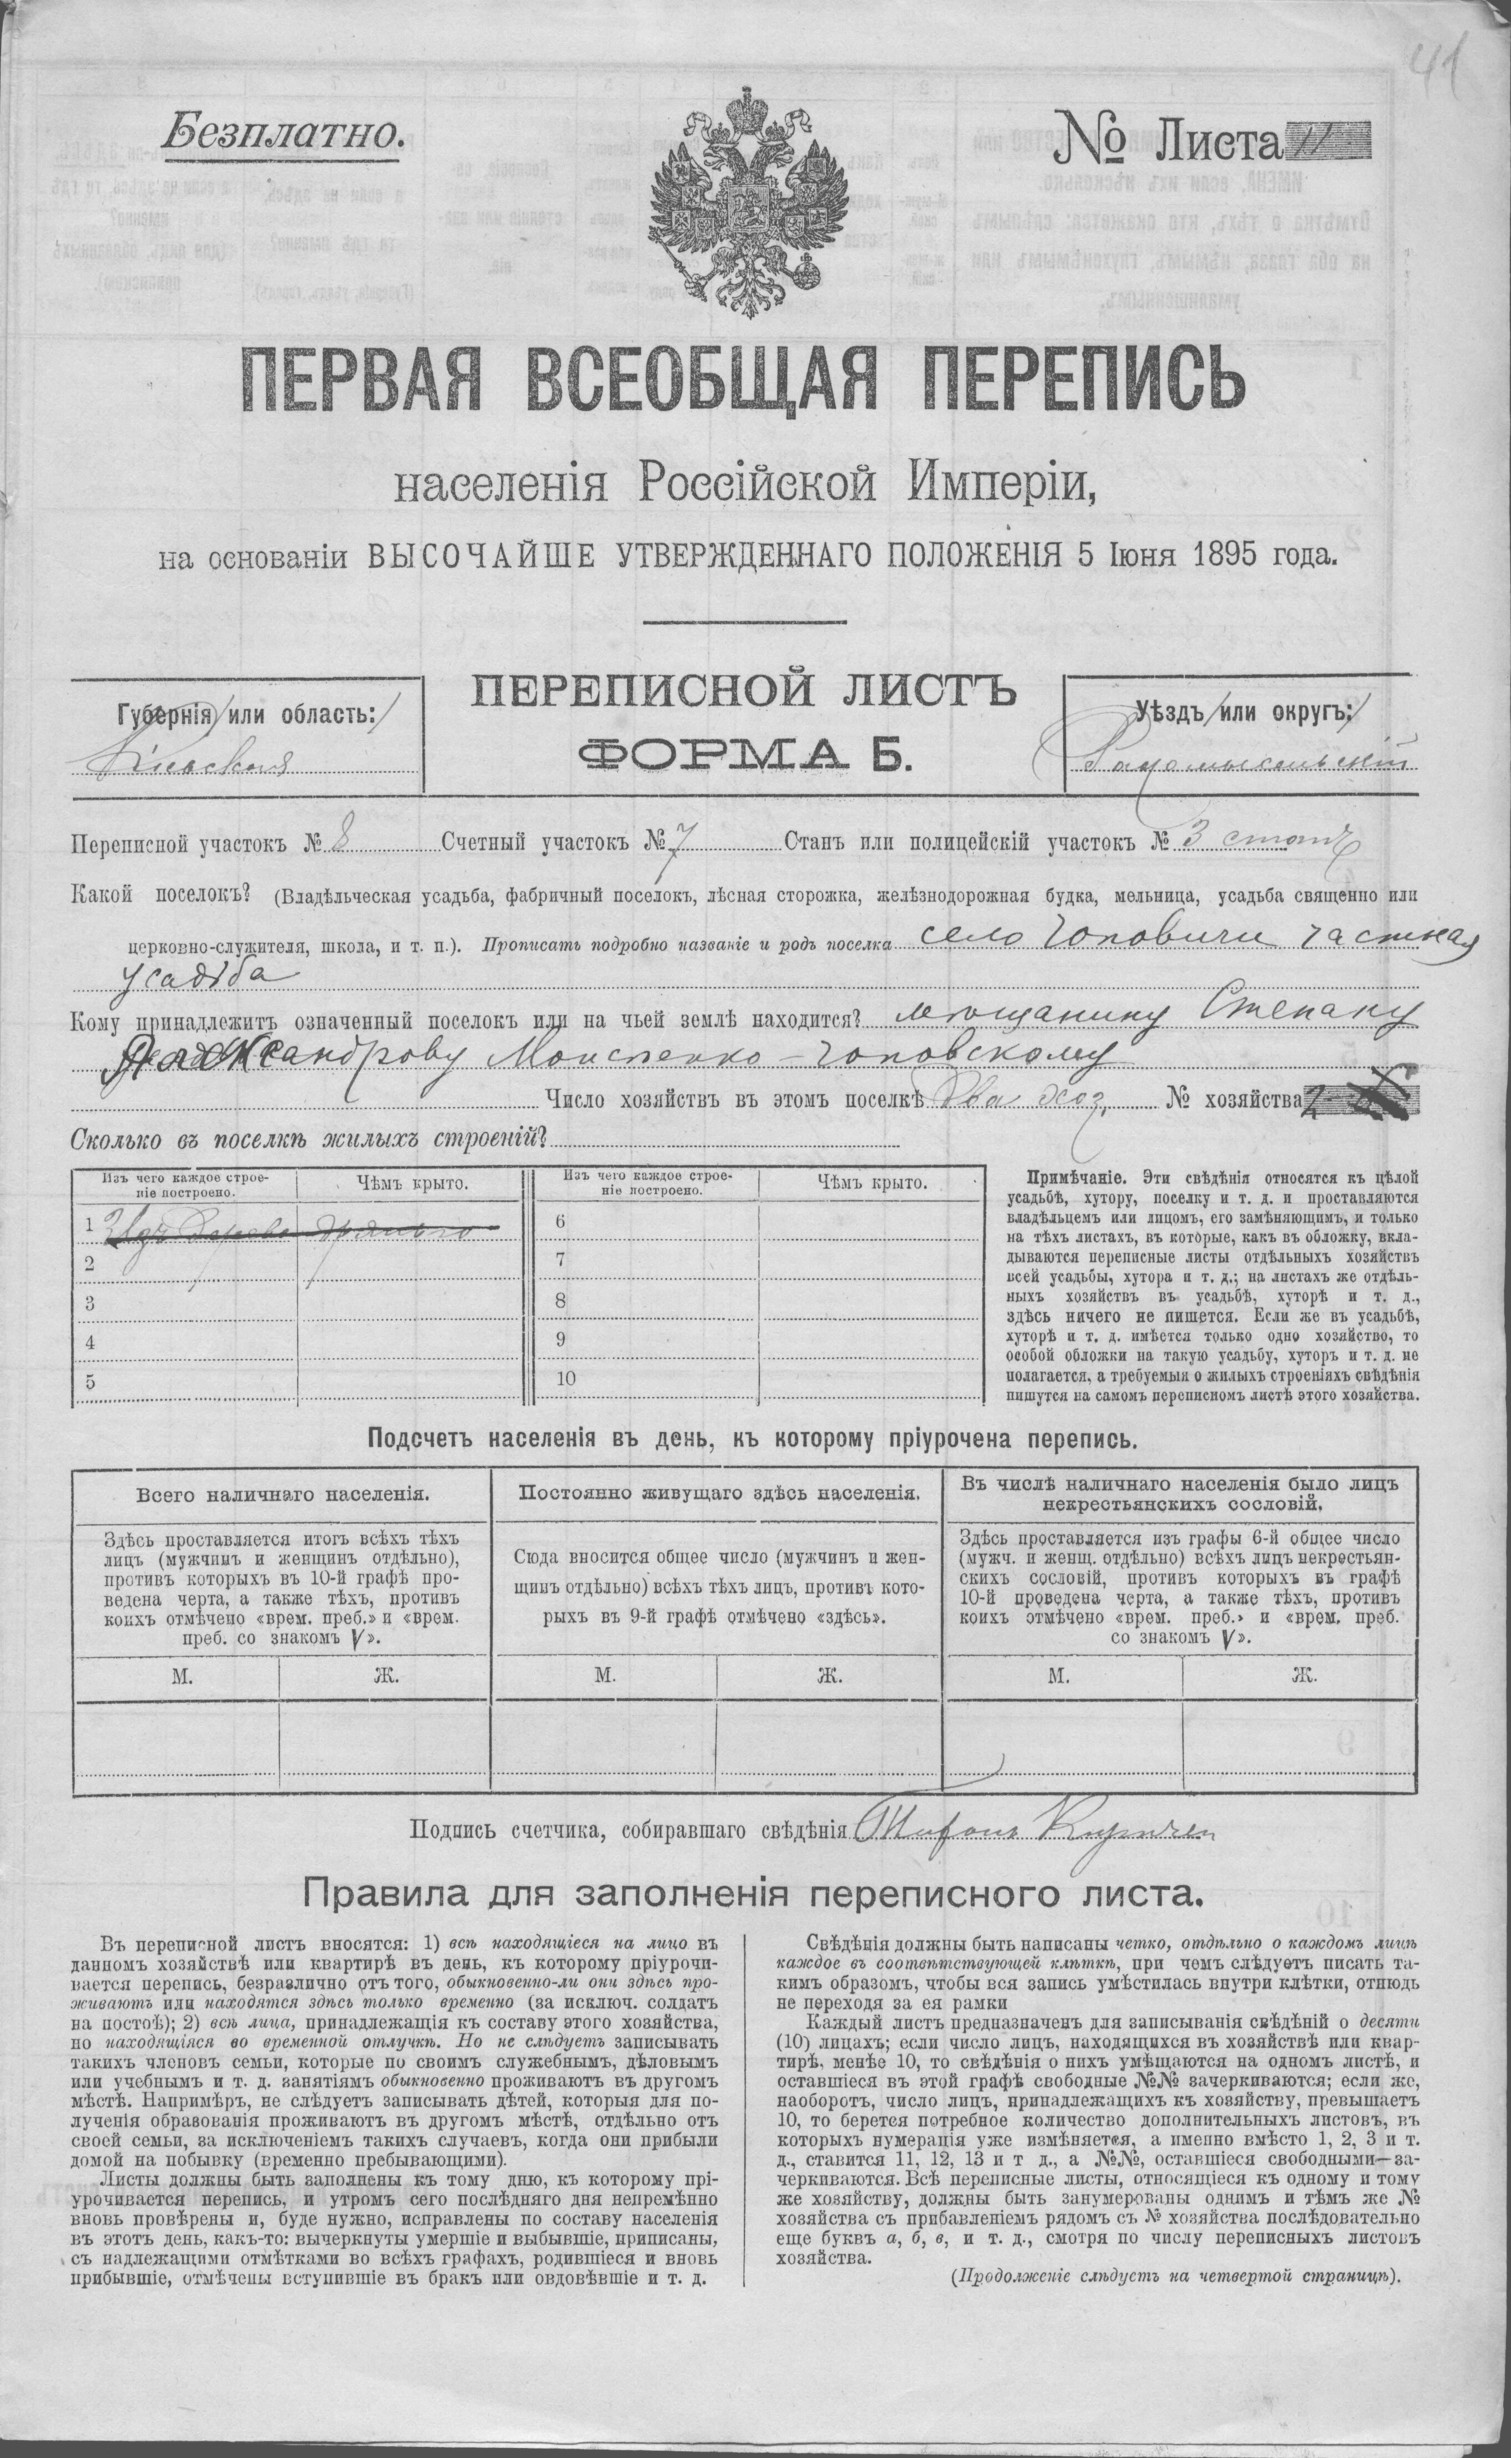 41
Безплатно.
№ Листа 11
ПЕРВАЯ ВСЕОБЩАЯ ПЕРЕПИСЬ
населенія Россійской Имперіи,
на основаніи ВЫСОЧАЙШЕ УТВЕРЖДЕННАГО ПОЛОЖЕНІЯ 5 Іюня 1895 года.
ПЕРЕПИСНОЙ ЛИСТЪ
ФОРМА Б.
Губернія или область:
Кіевская
Уѣздъ или округъ:
Радомысльскій
Переписной участокъ № 8 Счетный участокъ № 7 Станъ или полицейскій участокъ № 3 станъ
Какой поселокъ? (Владѣльческая усадьба, фабричный поселокъ, лѣсная сторожка, желѣзнодорожная будка, мельница, усадьба священно или
церковно-служителя, школа, и т. п.). Прописать подробно названіе и родъ поселка село Чоповичи частная
усадьба
Кому принадлежитъ означенный поселокъ или на чьей землѣ находится? мѣщанину Степану
Александрову Моисеенко-Чоповскому
Число хозяйствъ въ этомъ поселкѣ два хоз. № хозяйства 2
Сколько въ поселкѣ жилыхъ строеній?
Изъ чего каждое строе-
ніе построено.
Чѣмъ крыто.
Изъ чего каждое строе-
ніе построено.
Чѣмъ крыто.
1
2
3
4
5
6
7
8
9
10
Примѣчаніе. Эти свѣдѣнія относятся къ цѣлой
усадьбѣ, хутору, поселку и т. д. и проставляются
владѣльцемъ или лицомъ, его замѣняющимъ, и только
на тѣхъ листахъ, въ которые, какъ въ обложку, вкла-
дываются переписные листы отдѣльныхъ хозяйствъ
всей усадьбы, хутора и т. д.; на листахъ же отдѣль-
ныхъ хозяйствъ въ усадьбѣ, хуторѣ и т. д.,
здѣсь ничего не пишется. Если же въ усадьбѣ,
хуторѣ и т. д. имѣется только одно хозяйство, то
особой обложки на такую усадьбу, хуторъ и т. д. не
полагается, а требуемыя о жилыхъ строеніяхъ свѣдѣнія
пишутся на самомъ переписномъ листѣ этого хозяйства.
Подсчетъ населенія въ день, къ которому пріурочена перепись.
Всего наличнаго населенія.
Здѣсь проставляется итогъ всѣхъ тѣхъ
лицъ (мужчинъ и женщинъ отдѣльно),
противъ которыхъ въ 10-й графѣ про-
ведена черта, а также тѣхъ, противъ
коихъ отмѣчено «врем. преб.» и «врем.
преб. со знакомъ V».
М. Ж.
Постоянно живущаго здѣсь населенія.
Сюда вносится общее число (мужчинъ и жен-
щинъ отдѣльно) всѣхъ тѣхъ лицъ, противъ кото-
рыхъ въ 9-й графѣ отмѣчено «здѣсь».
М. Ж.
Въ числѣ наличнаго населенія было лицъ
некрестьянскихъ сословій.
Здѣсь проставляется изъ графы 6-й общее число
(мужч. и женщ. отдѣльно) всѣхъ лицъ некрестьян-
скихъ сословій, противъ которыхъ въ графѣ
10-й проведена черта, а также тѣхъ, противъ
коихъ отмѣчено «врем. преб.» и «врем. преб.
со знакомъ V».
М. Ж.
Подпись счетчика, собиравшаго свѣдѣнія
Правила для заполненія переписного листа.
Въ переписной листъ вносятся: 1) всѣ находящіеся на лицо въ
данномъ хозяйствѣ или квартирѣ въ день, къ которому пріурочи-
вается перепись, безразлично отъ того, обыкновенно-ли они здѣсь про-
живаютъ или находятся здѣсь только временно (за исключ. солдатъ
на постоѣ); 2) всѣ лица, принадлежащія къ составу этого хозяйства,
но находящіяся во временной отлучкѣ. Но не слѣдуетъ записывать
такихъ членовъ семьи, которые по своимъ служебнымъ, дѣловымъ
или учебнымъ и т. д. занятіямъ обыкновенно проживаютъ въ другомъ
мѣстѣ. Напримѣръ, не слѣдуетъ записывать дѣтей, которыя для по-
лученія образованія проживаютъ въ другомъ мѣстѣ, отдѣльно отъ
своей семьи, за исключеніемъ такихъ случаевъ, когда они прибыли
домой на побывку (временно пребывающими).
Листы должны быть заполнены къ тому дню, къ которому прі-
урочивается перепись, и утромъ сего послѣдняго дня непремѣнно
вновь провѣрены и, буде нужно, исправлены по составу населенія
въ этотъ день, какъ-то: вычеркнуты умершіе и выбывшіе, приписаны,
съ надлежащими отмѣтками во всѣхъ графахъ, родившіеся и вновь
прибывшіе, отмѣчены вступившіе въ бракъ или овдовѣвшіе и т. д.
Свѣдѣнія должны быть написаны четко, отдѣльно о каждомъ лицѣ
каждое въ соотвѣтствующей клѣткѣ, при чемъ слѣдуетъ писать та-
кимъ образомъ, чтобы вся запись умѣстилась внутри клѣтки, отнюдь
не переходя за ея рамки
Каждый листъ предназначенъ для записыванія свѣдѣній о десяти
(10) лицахъ; если число лицъ, находящихся въ хозяйствѣ или квар-
тирѣ, менѣе 10, то свѣдѣнія о нихъ умѣщаются на одномъ листѣ, и
оставшіеся въ этой графѣ свободные №№ зачеркиваются; если же,
наоборотъ, число лицъ, принадлежащихъ къ хозяйству, превышаетъ
10, то берется потребное количество дополнительныхъ листовъ, въ
которыхъ нумерація уже измѣняется, а именно вмѣсто 1, 2, 3 и т.
д., ставится 11, 12, 13 и т д., а №№, оставшіеся свободными—за-
черкиваются. Всѣ переписные листы, относящіеся къ одному и тому
же хозяйству, должны быть занумерованы однимъ и тѣмъ же №
хозяйства съ прибавленіемъ рядомъ съ № хозяйства послѣдовательно
еще буквъ а, б, в, и т. д., смотря по числу переписныхъ листовъ
хозяйства.
(Продолженіе слѣдуетъ на четвертой страницѣ).